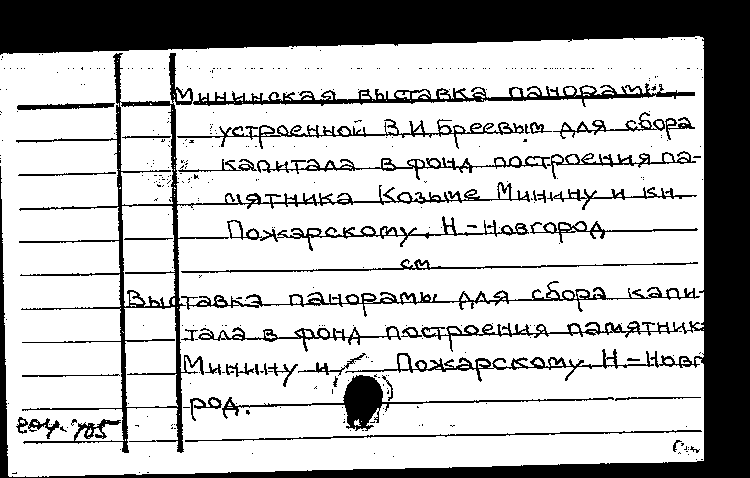 Мининская выставка панорамы,
устроенной В.И.Бреевым для сбора
капитала в фонд построения па-
мятника Козьме Минину и кн.
Пожарскому. Н.-Новгород
см.
Выставка панорамы для сбора капи-
тала в фонд построения памятника
Минину и Пожарскому. Н.-Новг
род.